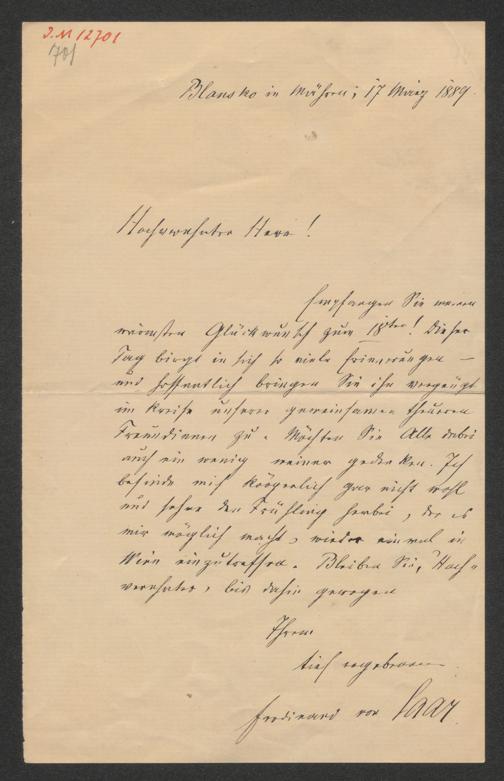 J.N 12701
701
Blansko in Mähren, 17 März 1889.
Hochverehrter Herr!
Empfangen Sie meinen
wärmsten Glückwunsch zum 18ten! Dieser
Tag birgt in sich so viele Erinnerungen –
und hoffentlich bringen Sie ihn vergnügt
im Kreise unserer gemeinsamen theuren
Freundinnen zu. Möchten Sie Alle dabei
auch ein wenig meiner gedenken. Ich
befinde mich körperlich gar nicht wohl
und sehne den Frühling herbei, der es
mir möglich macht, wieder einmal in
Wien einzutreffen. Bleiben Sie, Hoch-
verehrter, bis dahin gewogen
Ihrem
tief ergebenen
Ferdinand von Saar.